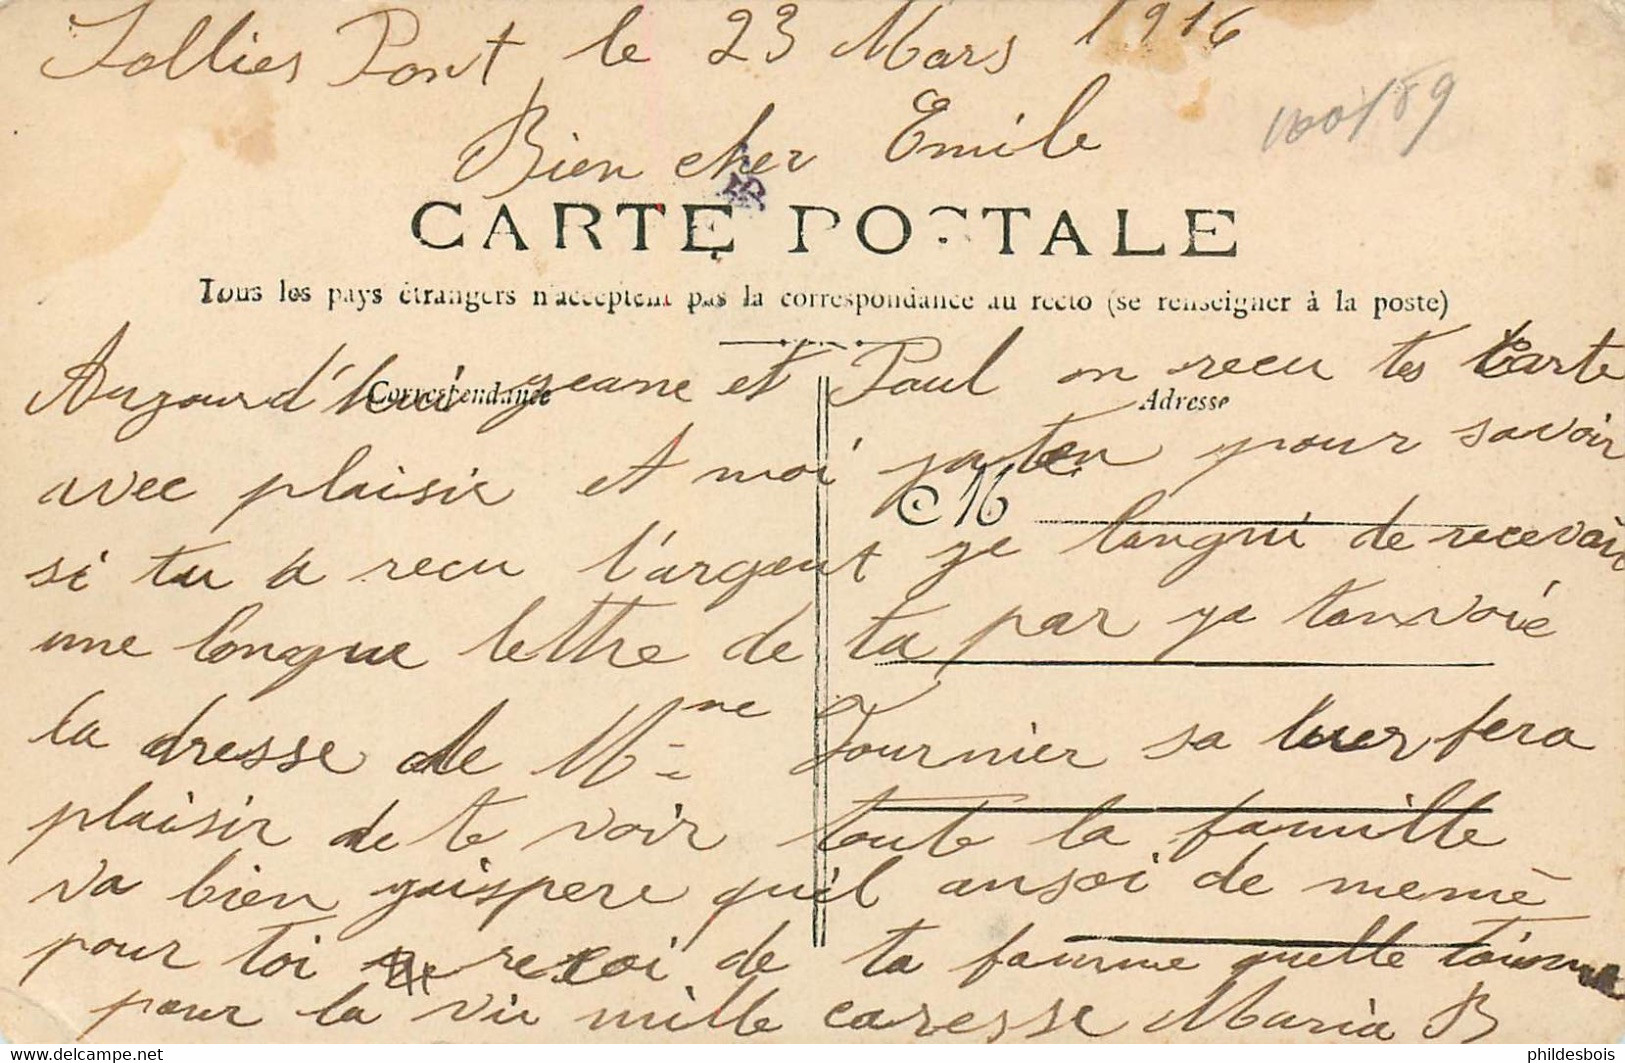 Sollies Pont le 23 Mars 1916
100/189
Bien cher Emile
CARTE POSTALE
Tous les pays étrangers n'acceptent pas la correspondance au recto (se renseigner à la poste)
Correspondance
Adresse
Aujourd'hui jeanne et Paul on recu tes Carte
avec plaisir et moi jaten pour savoir
C 16
si tu a recu l'argent je langui de recevoir
une longue lettre de ta par je tanvoie
la dresse de Mme Fournier sa luer fera
plaisir de te voir toute la famille
va bien jaispere quil ansoi de memè
pour toi recoi de ta famme quelle taime
pour la vie mille caresse Maria B
phildesbois